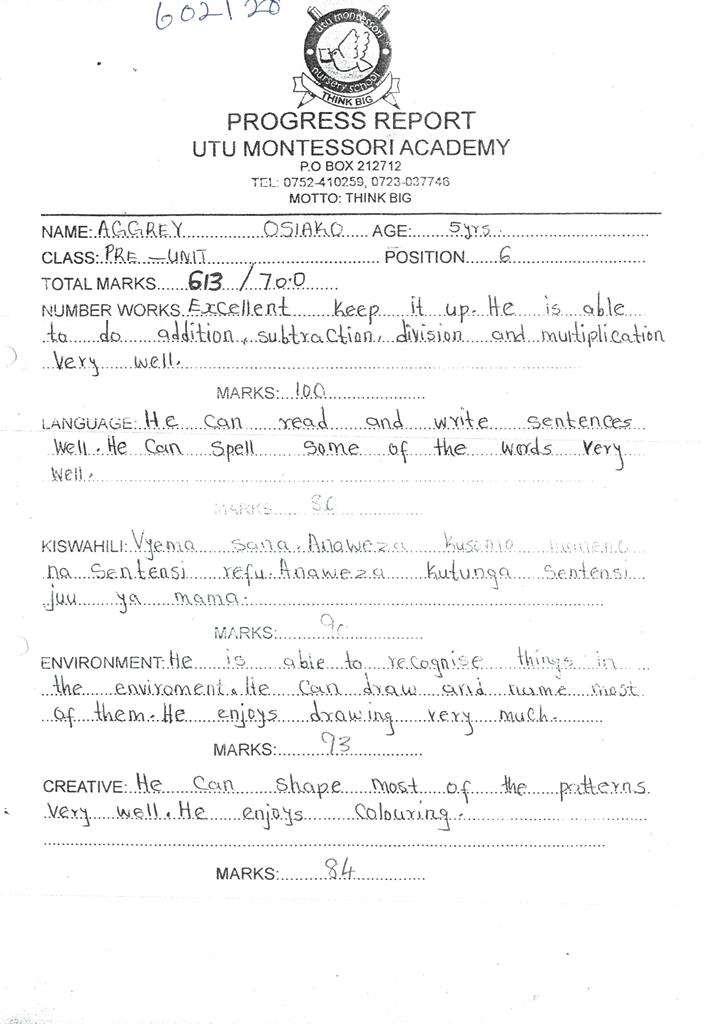 602120
utu montessori
nursery school
THINK BIG
PROGRESS REPORT
UTU MONTESSORI ACADEMY
P.O BOX 212712
TEL: 0752-410259, 0723-037746
MOTTO: THINK BIG
NAME: AGGREY OSIAKO AGE: 5yrs.
CLASS: PRE - UNIT POSITION 6
TOTAL MARKS 613 / 700
NUMBER WORKS Excellent keep it up. He is able
to do addition, subtraction, division and multiplication
Very well.
MARKS: 100
LANGUAGE: He can read and write sentences
Well. He Can Spell some of the words Very
Well.
MARKS
KISWAHILI: Vyema sana. Anaweza Kusoma
na Sentensi refu. Anaweza kutunga Sentensi
juu ya mama.
MARKS: 90
ENVIRONMENT: He is able to recognise things in
the enviroment. He can draw and name most
of them. He enjoys drawing very much.
MARKS: 93
CREATIVE: He Can shape most of the patterns
Very well. He enjoys Colouring.
MARKS: 84